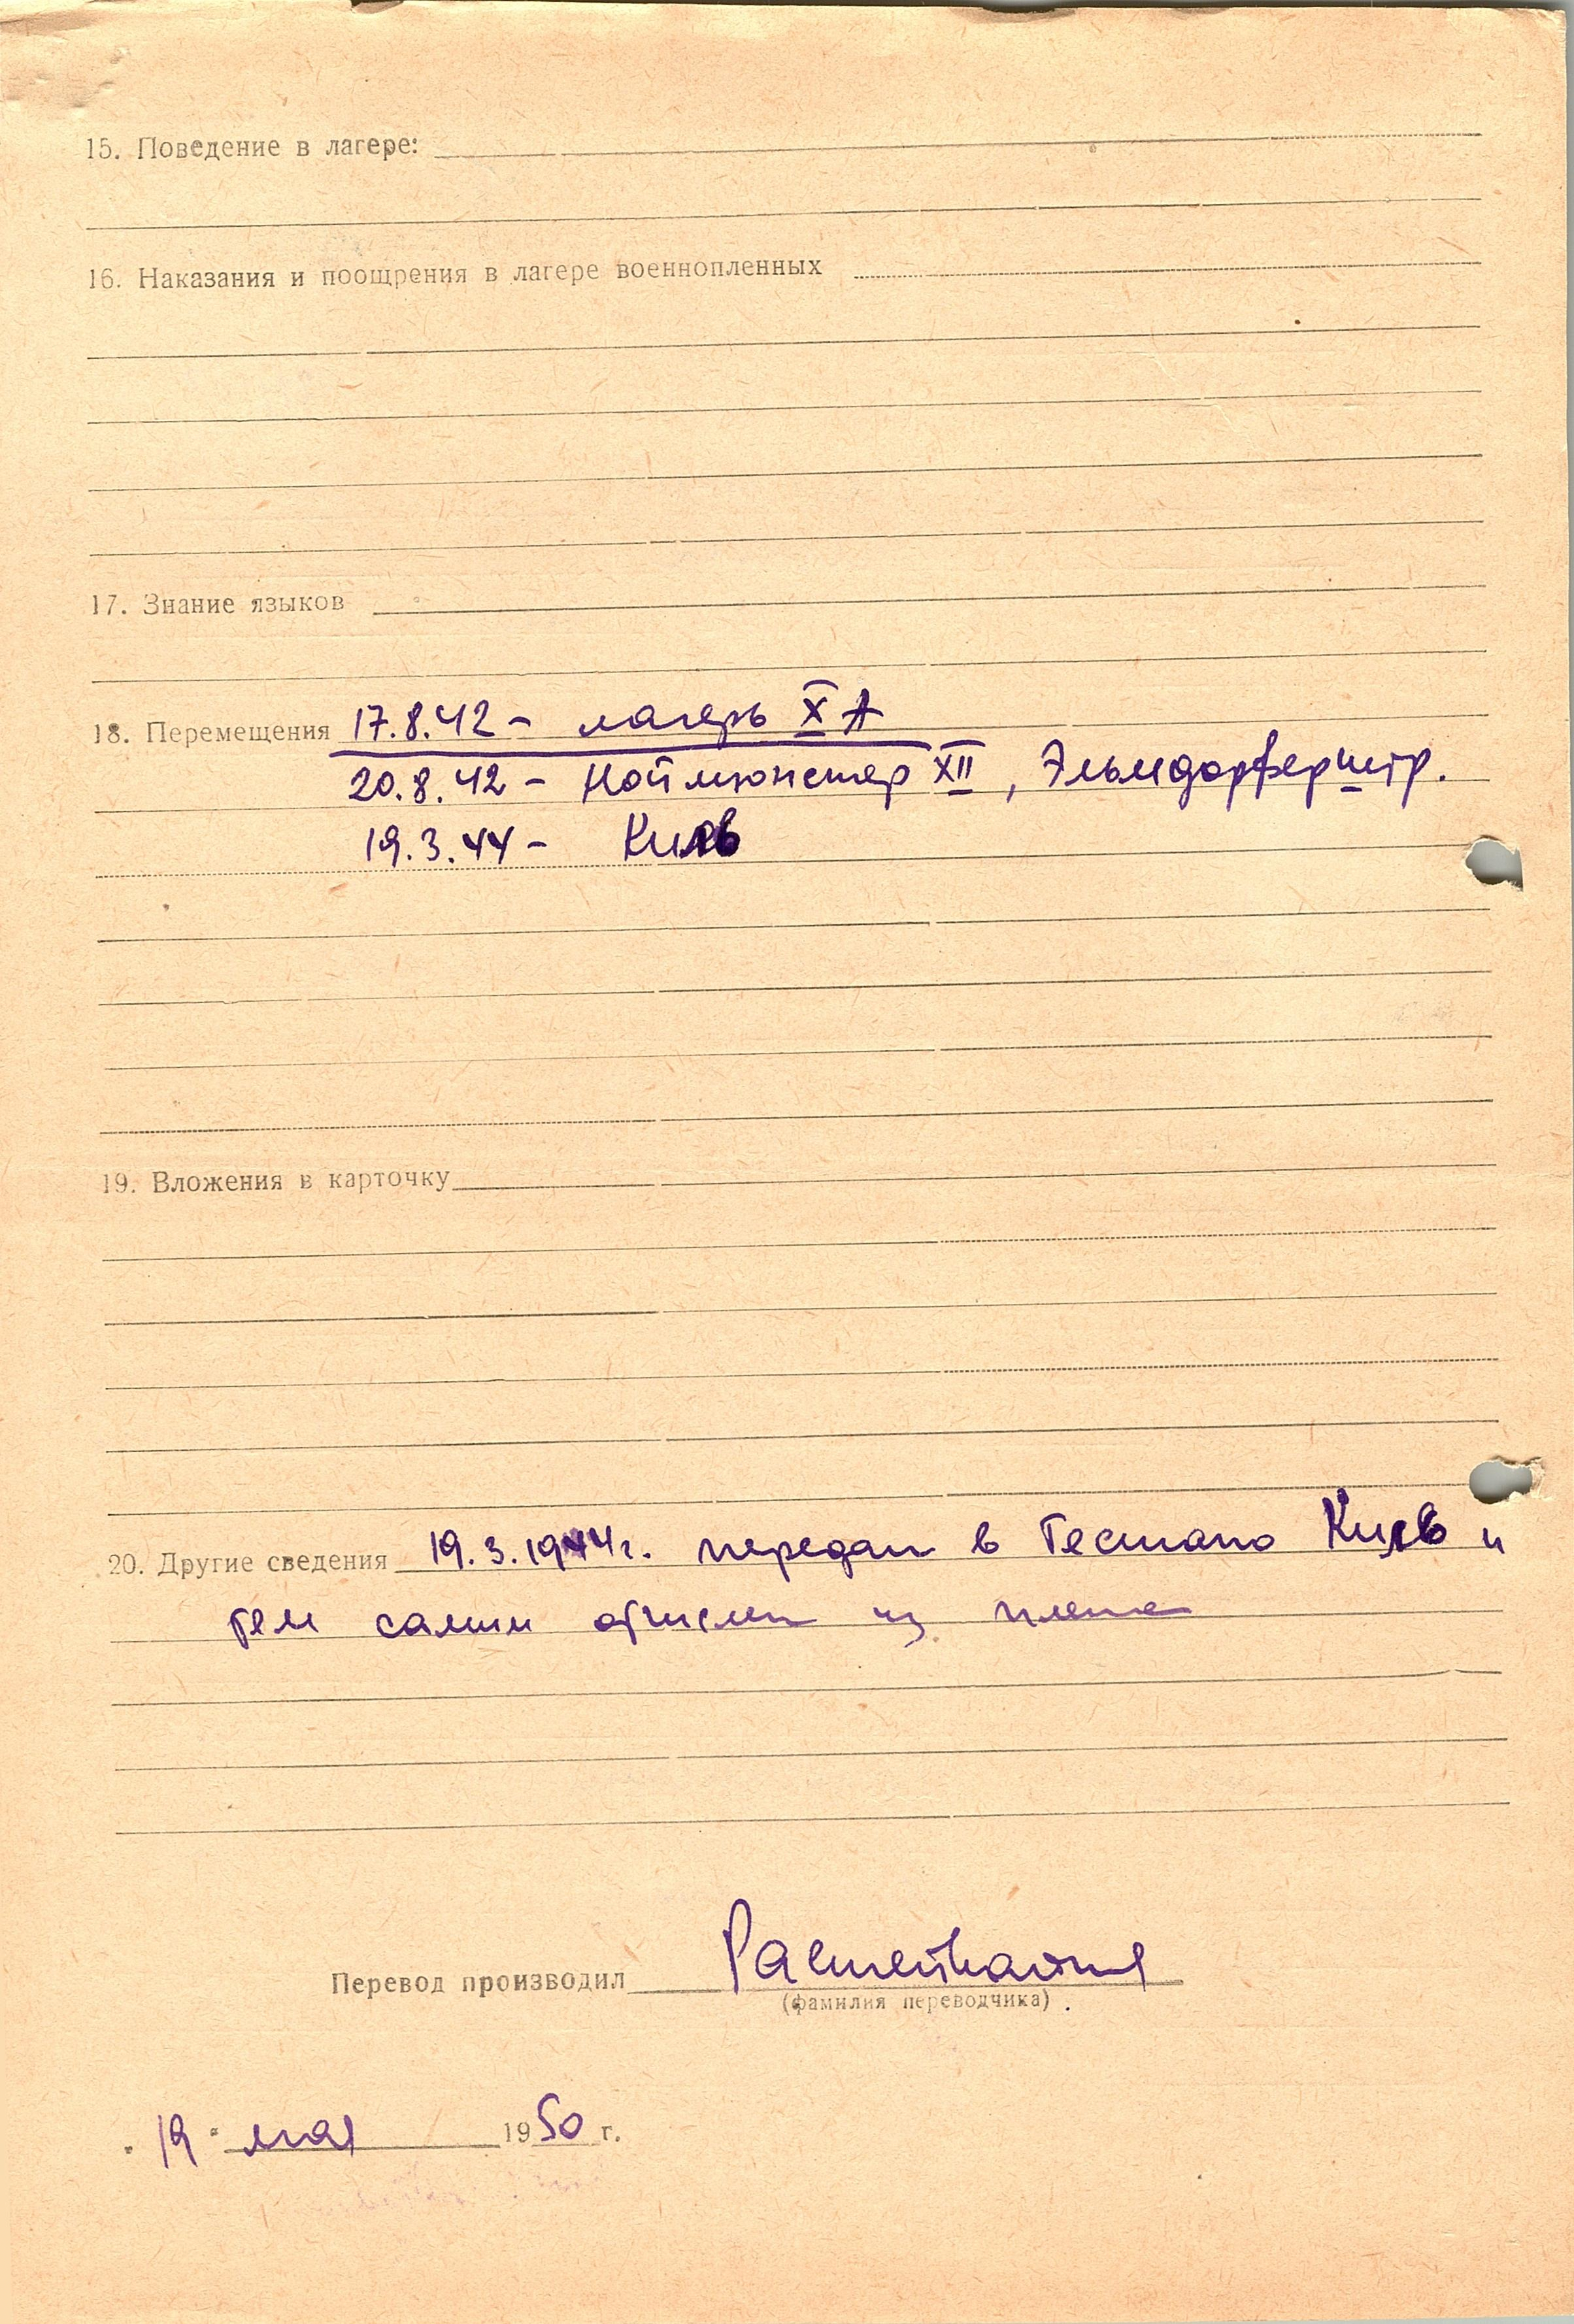 15. Поведение в лагере:
16. Наказания и поощрения в лагере военнопленных
17. Знание языков
18. Перемещения 17.8.42 - лагерь X A
20.8.42 - Ноймюнстер XII, Эльмдорферштр.
19.3.44 - Киль
19. Вложения в карточку
20. Другие сведения 19.3.1944г. передан в Гестапо Киль и
тем самым отчислен из плена
Перевод производил
(фамилия переводчика)
"19" мая 1950 г.